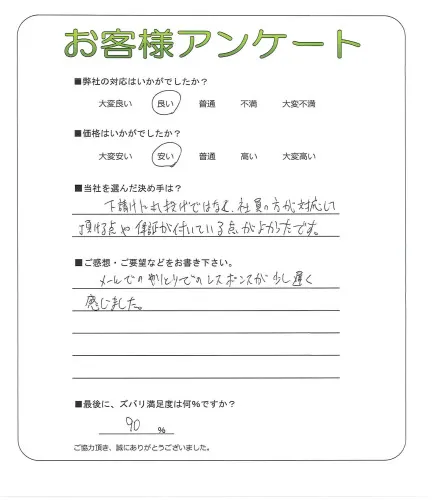 お客様アンケート
■弊社の対応はいかがでしたか？
大変良い 良い 普通 不満 大変不満
■価格はいかがでしたか？
大変安い 安い 普通 高い 大変高い
■当社を選んだ決め手は？
下請けに丸投げではなく、社員の方が対応して
頂ける点や保証が付いている点がよかったです。
■ご感想・ご要望などをお書き下さい。
メールでのやりとりでのレスポンスが少し遅く
感じました。
■最後に、ズバリ満足度は何％ですか？
90 ％
ご協力頂き、誠にありがとうございました。